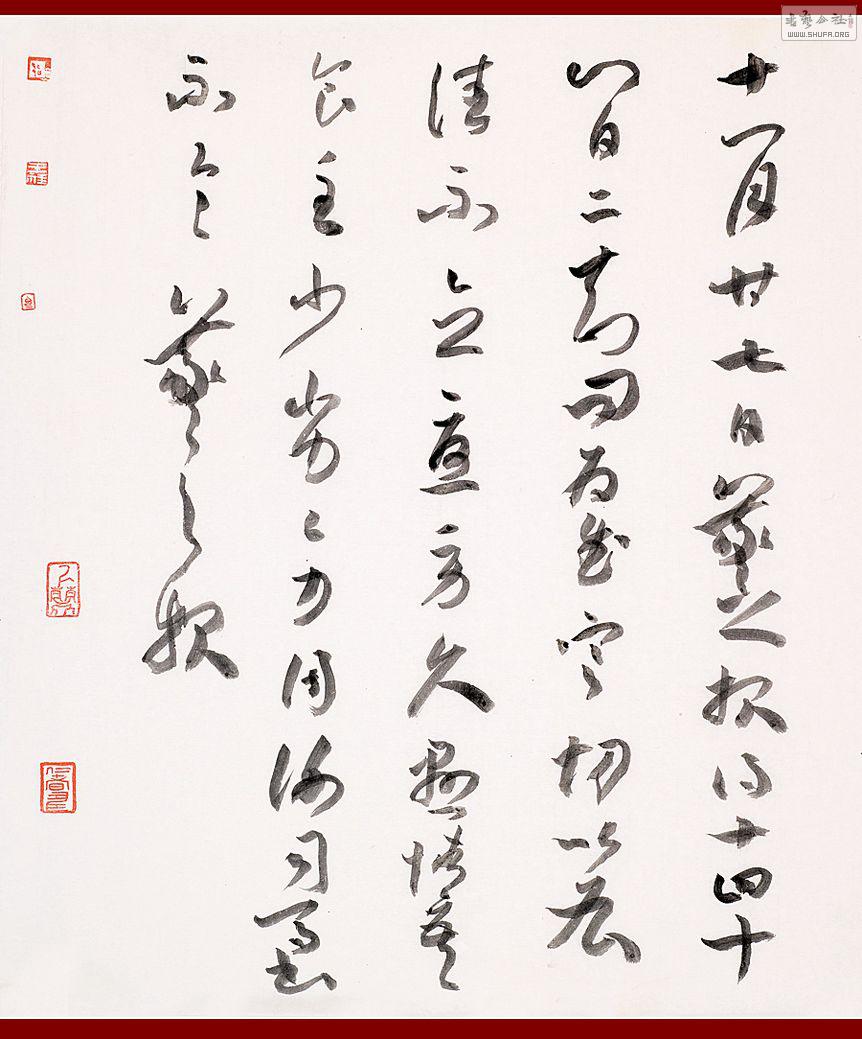 十一月廿七日羲之報得十四十
八日二書知問為慰寒切比各
佳不念憂勞久懸情吾
食至少劣劣力因謝司馬書
不一一羲之報
书艺公社
WWW.SHUFA.ORG